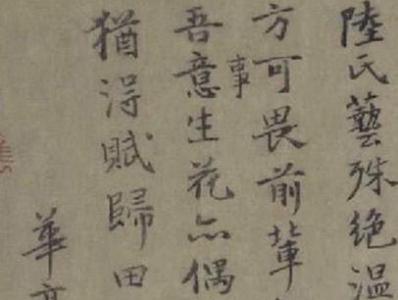 陸氏藝殊絶温
方可畏前輩
吾意事生花亦偶
猶得賦歸田
華